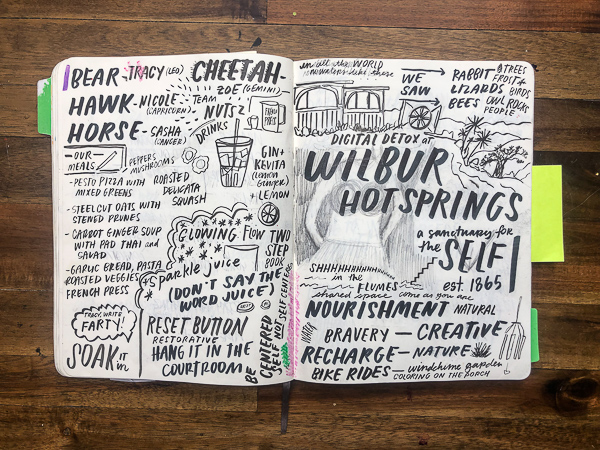 BEAR - TRACY (LEO)
HAWK - NICOLE (CAPRICORN)
HORSE - SASHA (CANCER)
CHEETAH -
ZOE (GEMINI)
TEAM
NUTSZ
DRINKS
FRENCH PRESS
OUR MEALS
PEPPERS
MUSHROOMS
- PESTO PIZZA WITH
MIXED GREENS
ROASTED
DELICATA
SQUASH
- STEELCUT OATS WITH
STEWED PRUNES
- CARROT GINGER SOUP
WITH PAD THAI and
SALAD
- GARLIC BREAD, PASTA
ROASTED VEGGIES
FRENCH PRESS
GIN +
KEVITA
(Lemon
Ginger)
+ LEMON
GLOWING Flow
TWO
STEP
BOOK
sparkle juice
(DON'T SAY THE
WORD JUICE)
WRITE
FARTY!
SOAK it in
RESET BUTTON
RESTORATIVE
HANG IT IN THE
COURTROOM
BE CENTERED
SELF NOT SELF CENTERED
in all the WORLD
these
WE
SAW
RABBIT
LIZARDS
BEES
TREES
FROST
BIRDS
OWL ROCKS
PEOPLE
DIGITAL DETOX at
WILBUR
HOT SPRINGS
a sanctuary for
the SELF
est. 1865
SHHHHHHHHHHHH
in the
FLUMES
shared space come as you are
NOURISHMENT NATURAL
WATER
BRAVERY - CREATIVE
RECHARGE - NATURE
BIKE RIDES - windchime garden
COLORING ON THE PORCH